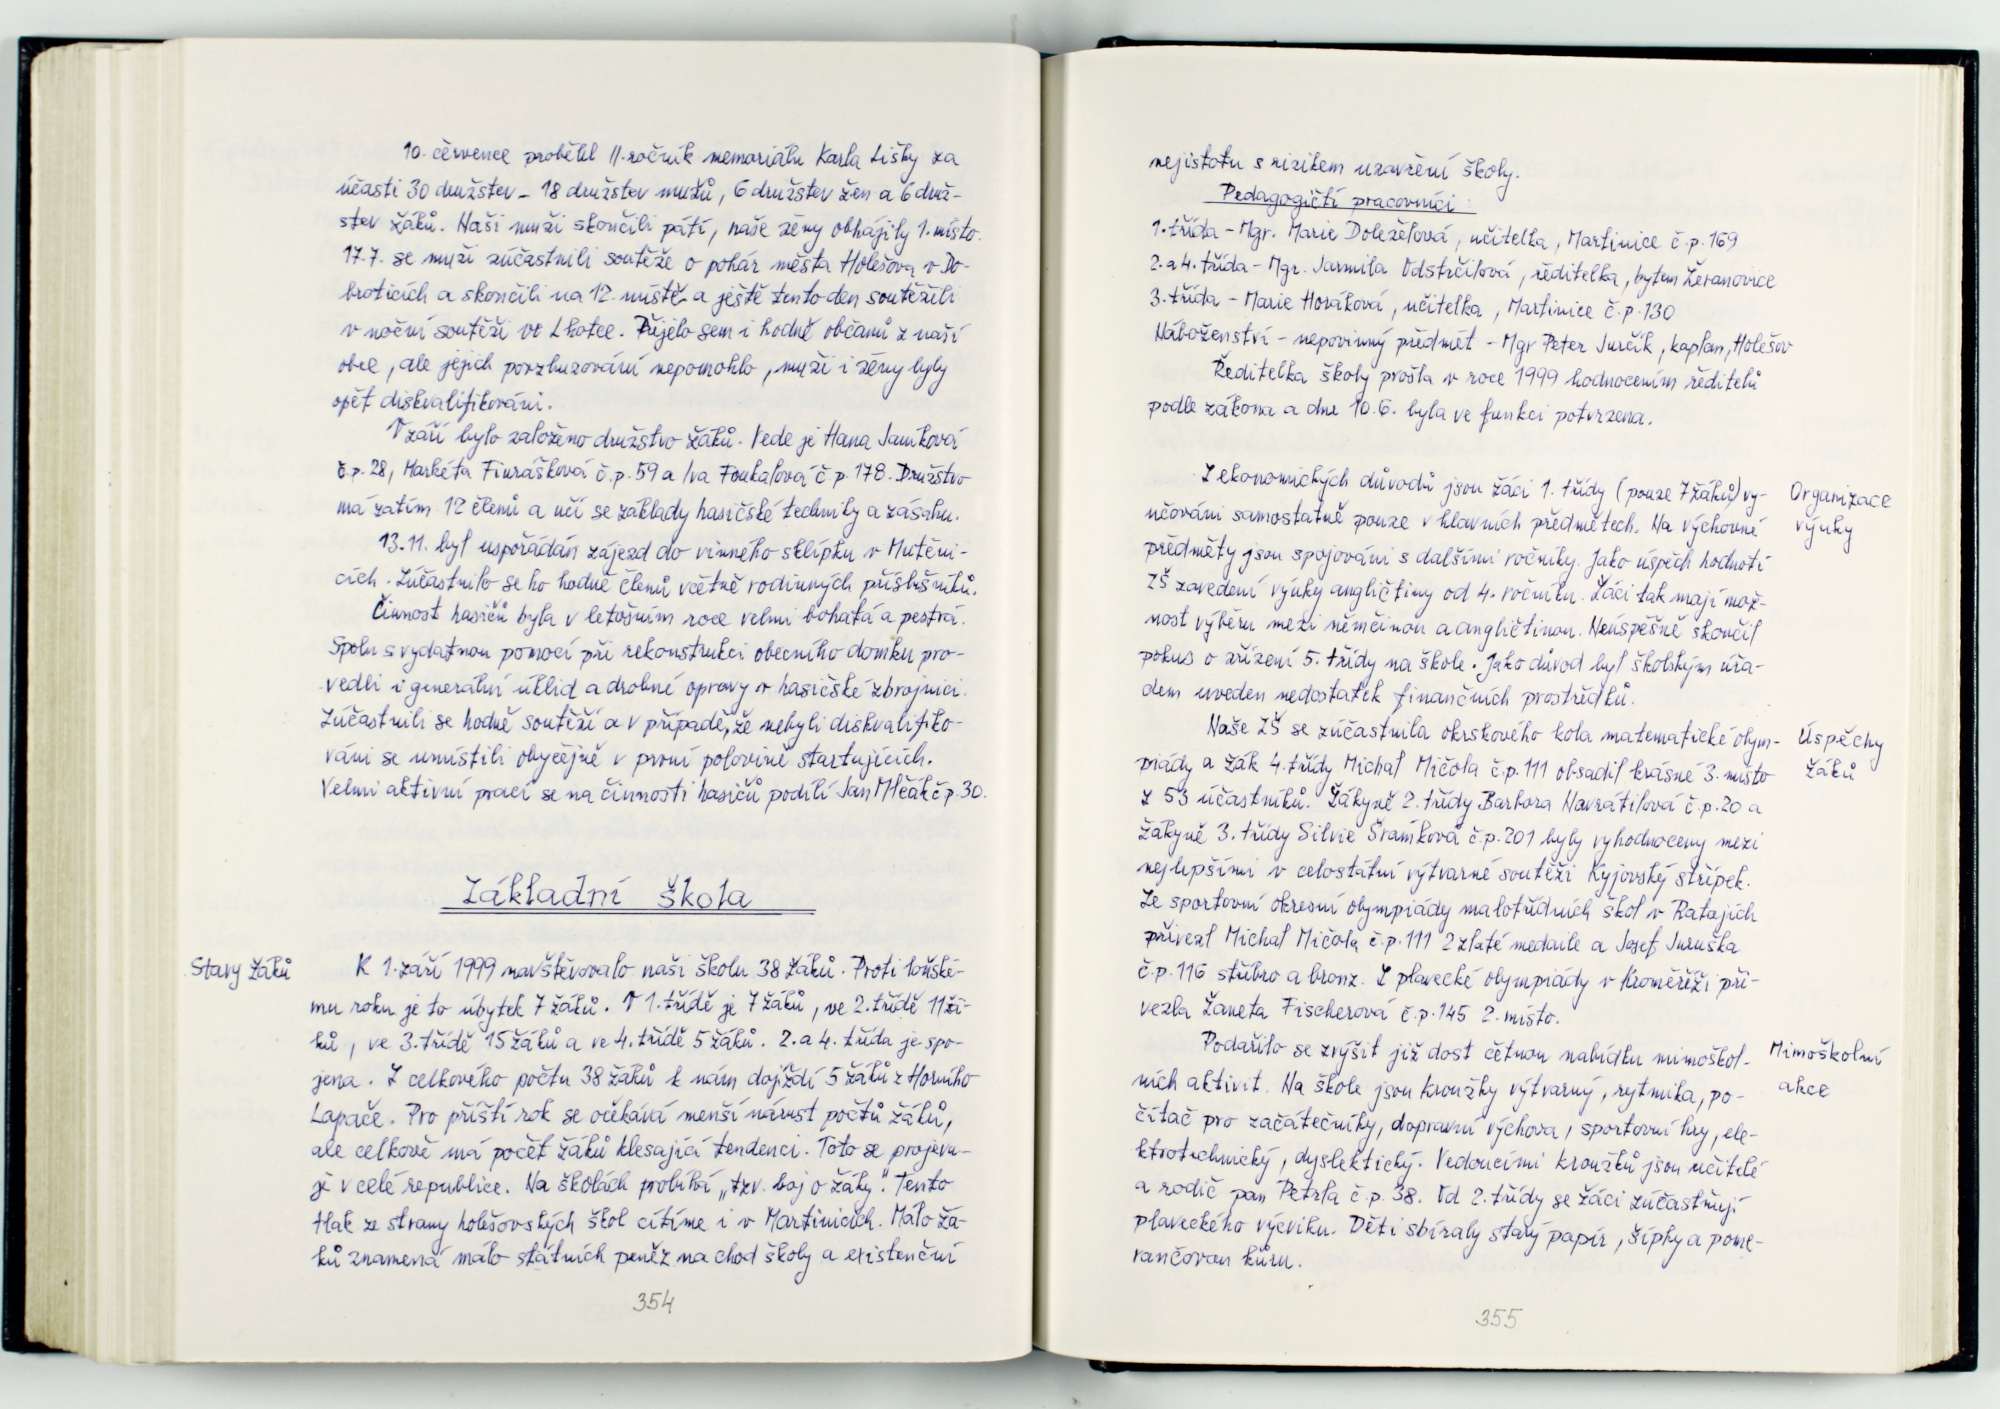 10. července proběhl II. ročník memoriálu Karla Lišky za
účasti 30 družstev - 18 družstev mužů, 6 družstev žen a 6 druž-
stev žáků. Naši muži skončili pátí, naše ženy obhájily 1. místo.
17.7. se muži zúčastnili soutěže o pohár města Holešova v Do-
broticích a skončili na 12. místě a ještě tento den soutěžili
v noční soutěži ve Lhotce. Přijelo sem i hodně občanů z naší
obce, ale jejich povzbuzování nepomohlo, muži i ženy byly
opět diskvalifikováni.
V září bylo založeno družstvo žáků. Vede je Hana Janíková
č.p. 28, Markéta Finrášková č.p. 59 a Iva Foukalová č.p. 178. Družstvo
má zatím 12 členů a učí se základy hasičské techniky a zásahu.
13.11. byl uspořádán zájezd do vinného sklípku v Mutěni-
cích. Zúčastnilo se ho hodně členů včetně rodinných příslušníků.
Činnost hasičů byla v letošním roce velmi bohatá a pestrá.
Spolu s vydatnou pomocí při rekonstrukci obecního domku pro-
vedli i generální úklid a drobné opravy v hasičské zbrojnici.
Zúčastnili se hodně soutěží a v případě, že nebyli diskvalifiko-
váni se umístili obyčejně v první polovině startujících.
Velmi aktivní prací se na činnosti hasičů podílí Jan Mlčák č.p. 30.
Základní škola
Stavy žáků
K 1. září 1999 navštěvovalo naši školu 38 žáků. Proti loňské-
mu roku je to úbytek 7 žáků. V 1. třídě je 7 žáků, ve 2. třídě 11 žá-
ků, ve 3. třídě 15 žáků a ve 4. třídě 5 žáků. 2. a 4. třída je spo-
jena. Z celkového počtu 38 žáků k nám dojíždí 5 žáků z Horního
Lapače. Pro příští rok se očekává menší nárust počtů žáků,
ale celkově má počet žáků klesající tendenci. Toto se projevu-
je v celé republice. Na školách probíhá „tzv. boj o žáky". Tento
tlak ze strany holešovských škol cítíme i v Martinicích. Málo žá-
ků znamená málo státních peněz na chod školy a existenční
354
nejistotu s rizikem uzavření školy.
Pedagogičtí pracovníci:
1. třída - Mgr. Marie Doleželová, učitelka, Martinice č.p. 169
2. a 4. třída - Mgr. Jarmila Odstrčilová, ředitelka, bytem Žeranovice
3. třída - Marie Horáková, učitelka, Martinice č.p. 130
Náboženství - nepovinný předmět - Mgr Peter Jurčík, kaplan, Holešov
Ředitelka školy prošla v roce 1999 hodnocením ředitelů
podle zákona a dne 10.6. byla ve funkci potvrzena.
Organizace
výuky
Z ekonomických důvodů jsou žáci 1. třídy (pouze 7 žáků) vy-
učováni samostatně pouze v hlavních předmětech. Na výchovné
předměty jsou spojováni s dalšími ročníky. Jako úspěch hodnotí
ZŠ zavedení výuky angličtiny od 4. ročníku. Žáci tak mají mož-
nost výběru mezi němčinou a angličtinou. Neúspěšně skončil
pokus o zřízení 5. třídy na škole. Jako důvod byl školským úřa-
dem uveden nedostatek finančních prostředků.
Úspěchy
žáků
Naše ZŠ se zúčastnila okrskového kola matematické olym-
piády a žák 4. třídy Michal Mičola č.p. 111 obsadil krásné 3. místo
z 53 účastníků. Žákyně 2. třídy Barbora Navrátilová č.p. 20 a
žákyně 3. třídy Silvie Šramková č.p. 201 byly vyhodnoceny mezi
nejlepšími v celostátní výtvarné soutěži Kyjovský střípek.
Ze sportovní okresní olympiády malotřídních škol v Ratajích
přivezl Michal Mičola č.p. 111 2 zlaté medaile a Josef Juruška
č.p. 116 stříbro a bronz. Z plavecké olympiády v Kroměříži při-
vezla Žaneta Fischerová č.p. 145 2. místo.
Mimoškolní
akce
Podařilo se zvýšit již dost četnou nabídku mimoškol-
ních aktivit. Na škole jsou kroužky výtvarný, rytmika, po-
čítač pro začátečníky, dopravní výchova, sportovní hry, ele-
ktrotechnický, dyslektický. Vedoucími kroužků jsou učitelé
a rodič pan Petrla č.p. 38. Od 2. třídy se žáci zúčastňují
plaveckého výcviku. Děti sbíraly starý papír, šípky a pome-
rančovou kůru.
355